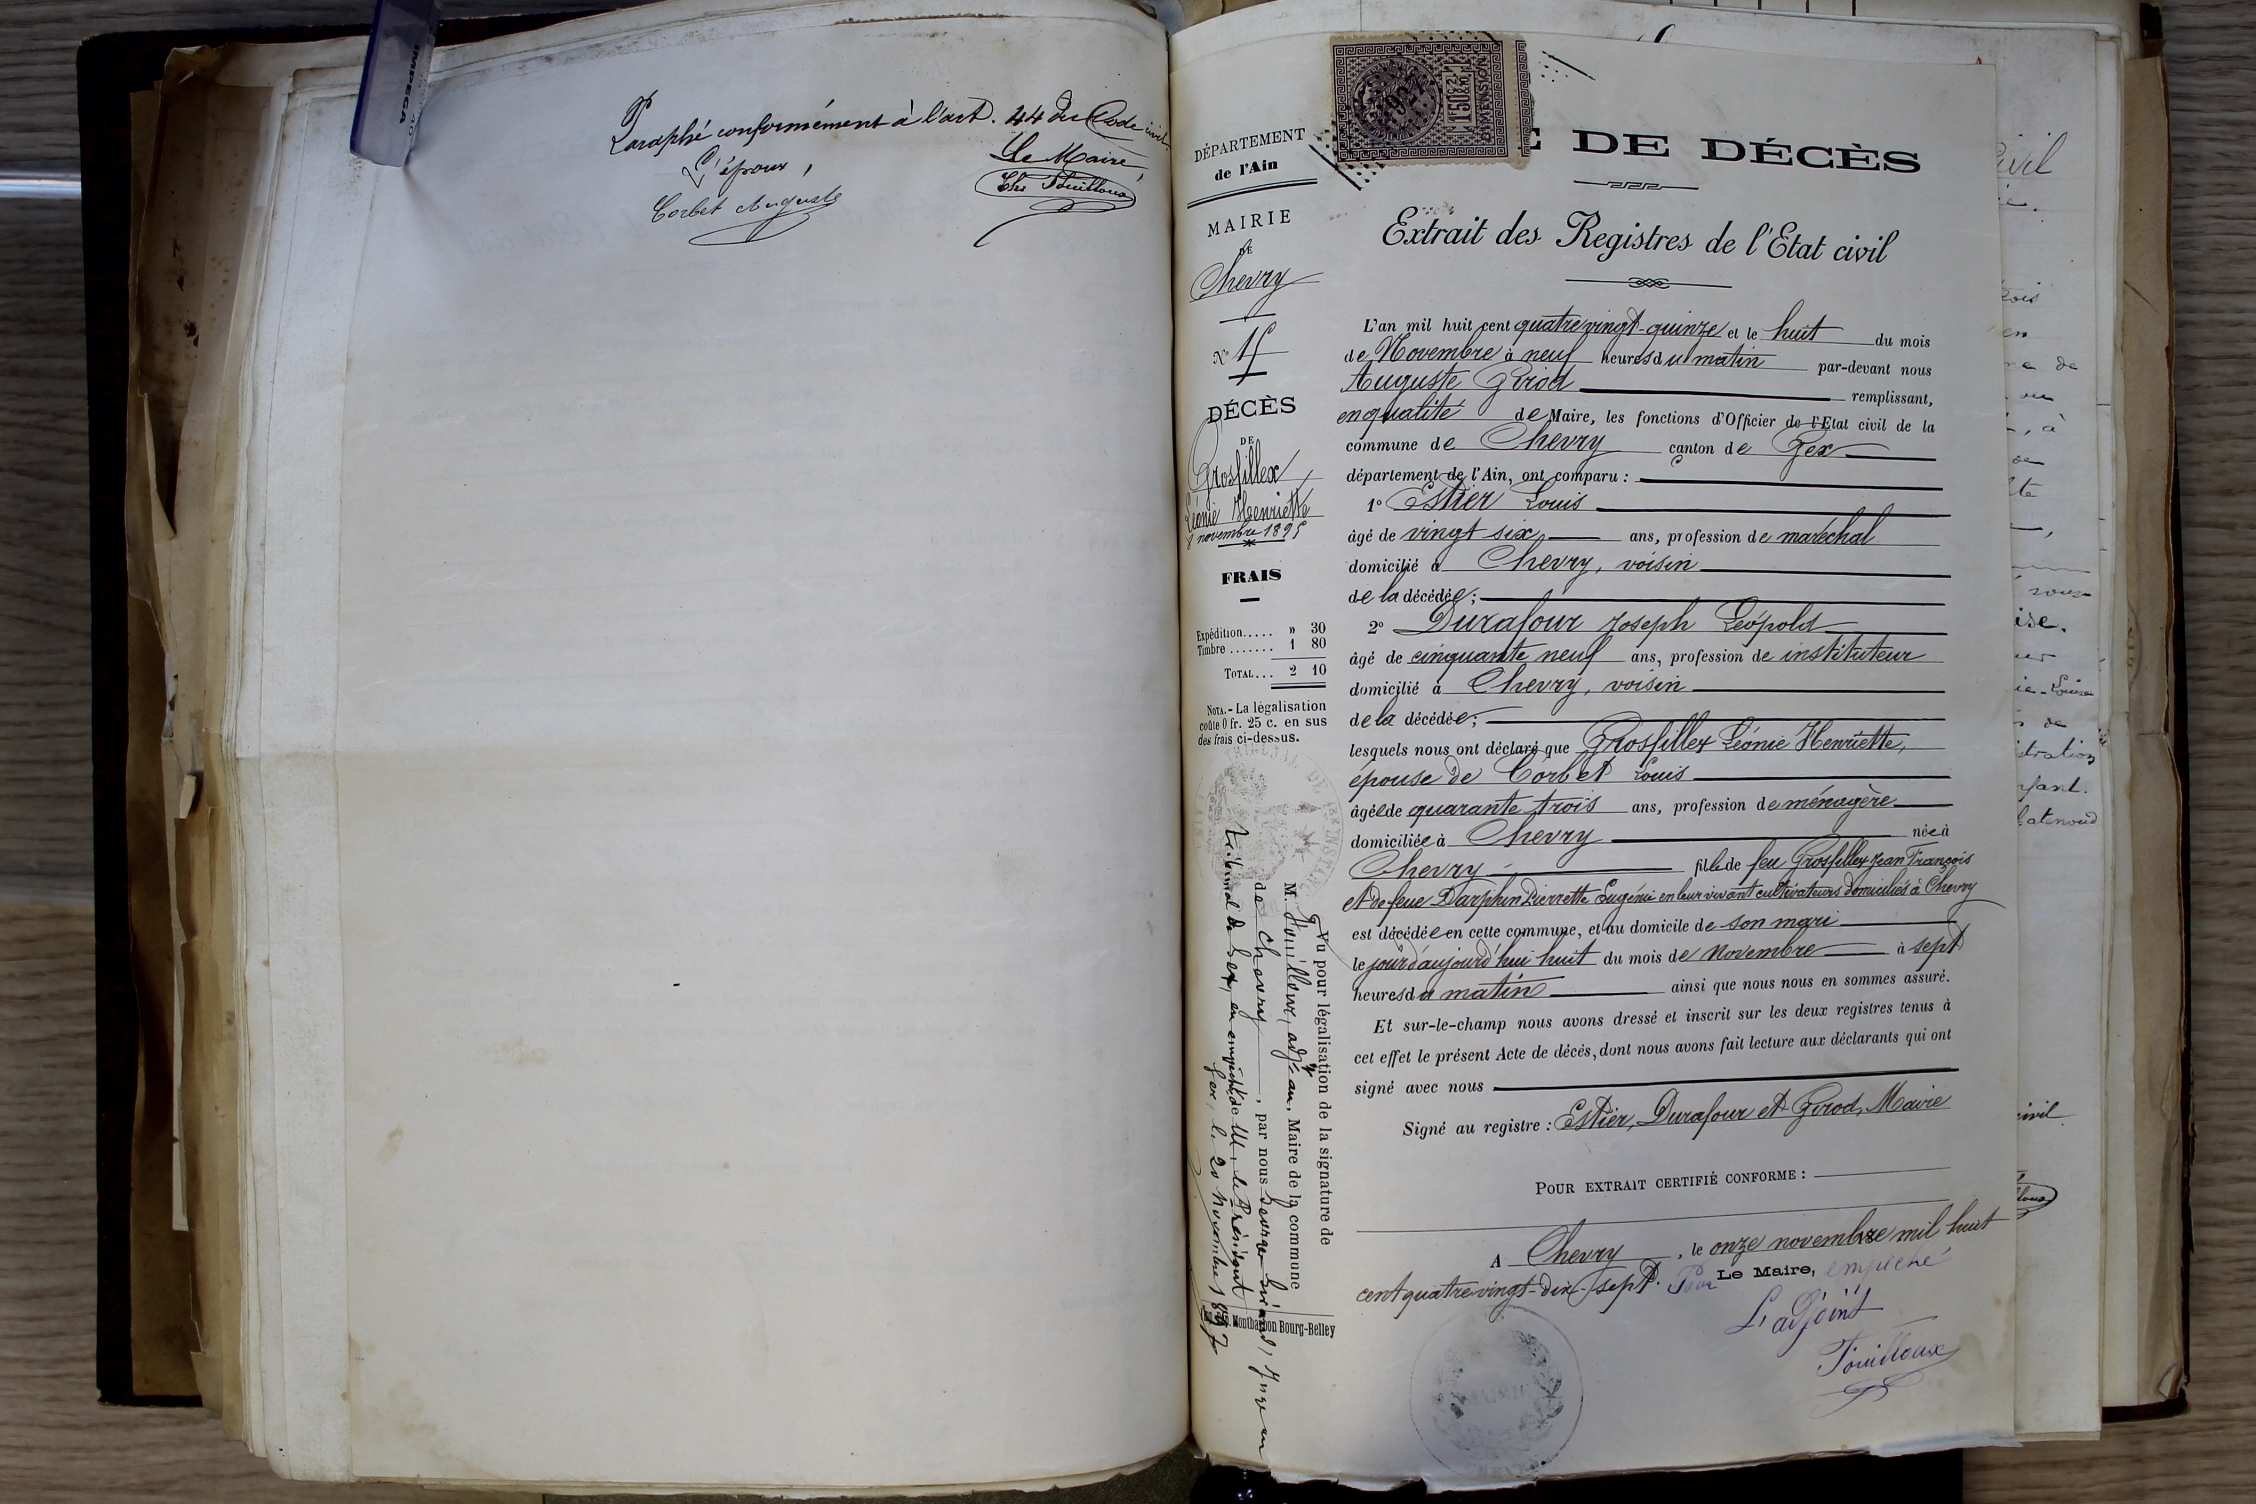 Paraphé conformément à l'art. 44 du Code civil
L'époux,
Le Maire,
Corbet Auguste
DÉPARTEMENT
de l'Ain
MAIRIE
DE
Chevry
DÉCÈS
DE
Grosfillex
Léonie Henriette
8 novembre 1895
FRAIS
Expédition..... » 30
Timbre....... 1 80
TOTAL... 2 10
NOTA. - La légalisation
coûte 0 fr. 25 c. en sus
des frais ci-dessus.
Vu pour légalisation de la signature de
M. Fouilloux, adjt au Maire de la commune
de Chevry, par nous George Girand, Juge au
tribunal de Gex, en empêcht de M. le Président
Gex, le 20 Novembre 1897
Montbarbon Bourg-Belley
1927
1f50&2/10
DIMENSION
E DE DÉCÈS
Extrait des Registres de l'Etat civil
L'an mil huit cent quatre vingt-quinze et le huit du mois
de Novembre à neuf heures du matin par-devant nous
Auguste Girod remplissant,
en qualité de Maire, les fonctions d'Officier de l'Etat civil de la
commune de Chevry canton de Gex
département de l'Ain, ont comparu :
1° Estier Louis
âgé de vingt six ans, profession de maréchal
domicilié à Chevry, voisin
de la décédée;
2° Durafour Joseph Léopold
âgé de cinquante neuf ans, profession de instituteur
domicilié à Chevry, voisin
de la décédée;
lesquels nous ont déclaré que Grosfillex Léonie Henriette,
épouse de Corbet Louis
âgée de quarante trois ans, profession de ménagère
domiciliée à Chevry née à
Chevry fille de feu Grosfillex Jean François
et de feue Darphin Pierrette Eugénie en leur vivant cultivateurs domiciliés à Chevry
est décédée en cette commune, et au domicile de son mari
le jour d'aujourd'hui huit du mois de Novembre à sept
heures du matin ainsi que nous nous en sommes assuré.
Et sur-le-champ nous avons dressé et inscrit sur les deux registres tenus à
cet effet le présent Acte de décès, dont nous avons fait lecture aux déclarants qui ont
signé avec nous
Signé au registre : Estier, Durafour et Girod, Maire
POUR EXTRAIT CERTIFIÉ CONFORME :
A Chevry, le onze novembre mil huit
cent quatre vingt-dix-sept. Pour Le Maire, empêché
L'adjoint
Fouilloux